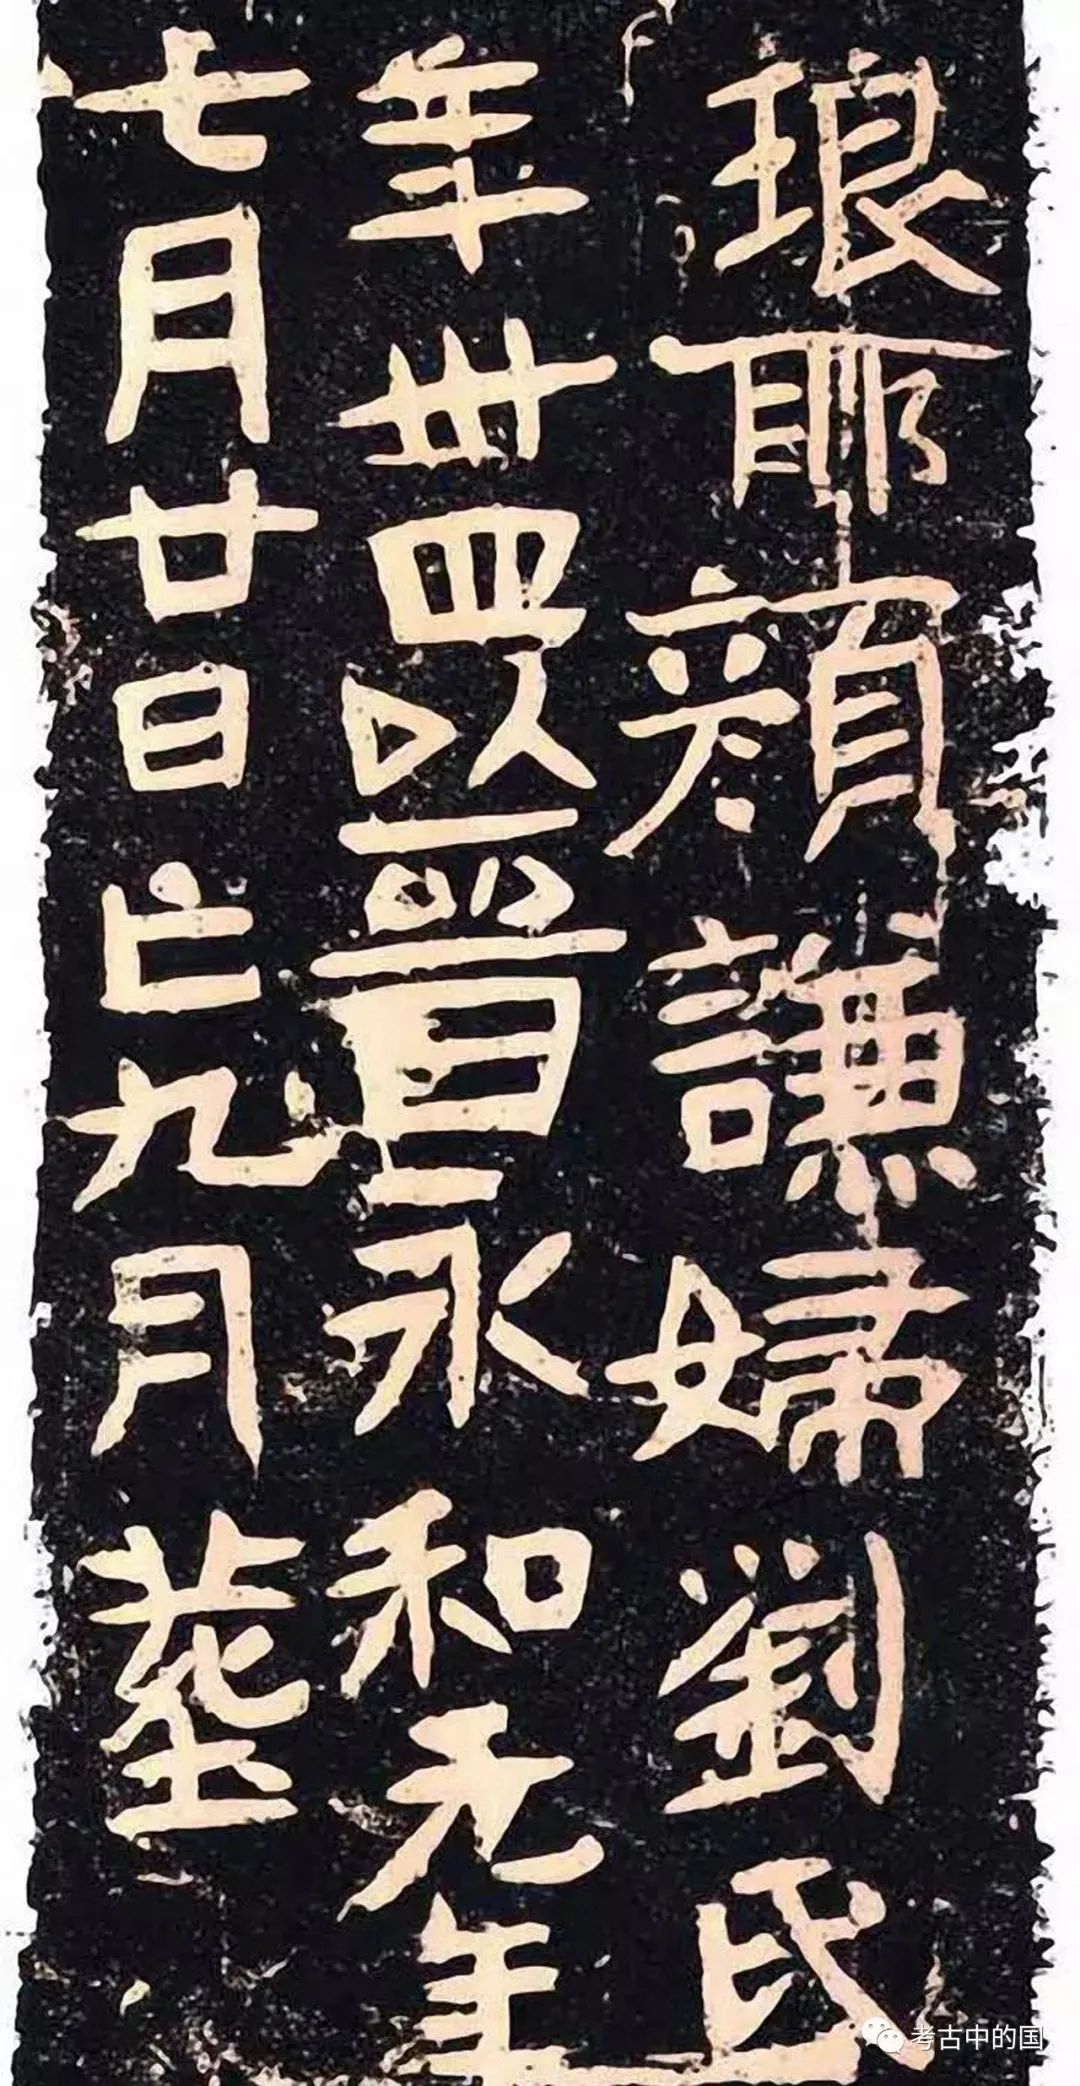 琅耶顏謙婦劉氏
年卅四以晉永和元年
七月廿日亡九月葬
考古中的国